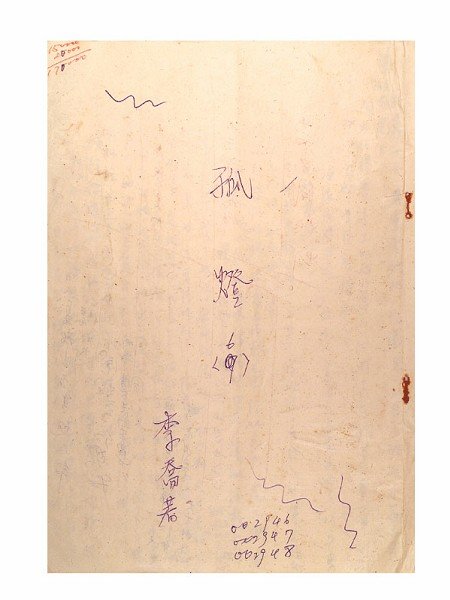 孤
燈
6
李喬著
002946
002947
002948